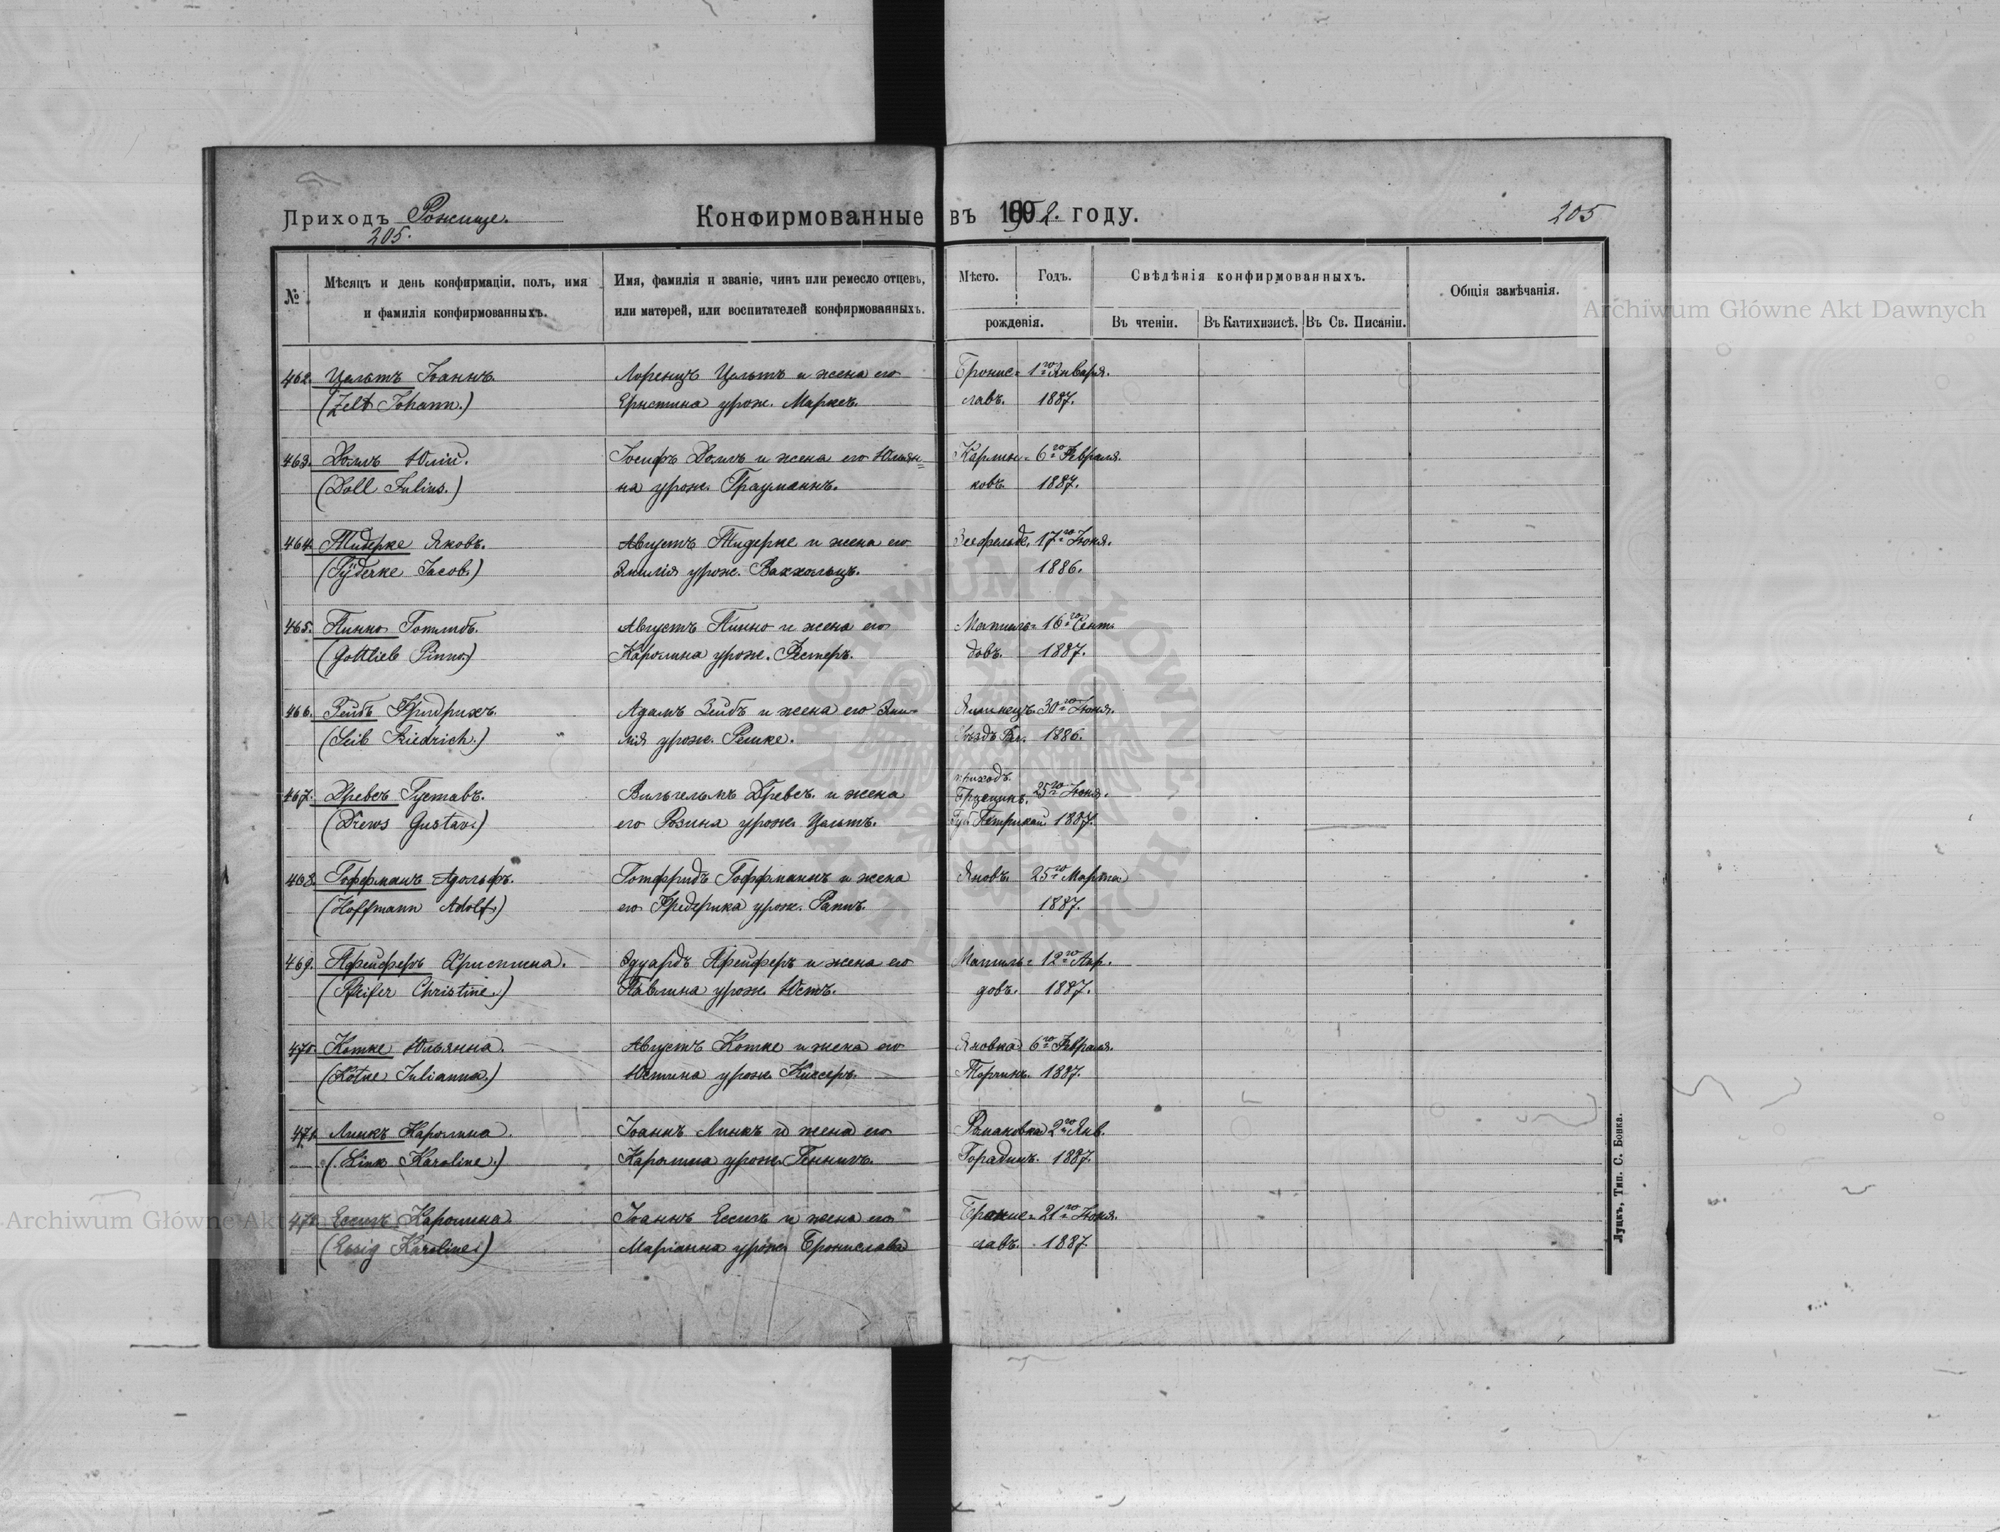 Приходъ Рожище.
205.
Конфирмованные въ 1902. году.
205
№
Мѣсяцъ и день конфирмаціи, полъ, имя
и фамилія конфирмованныхъ.
Имя, фамилія и званіе, чинъ или ремесло отцевъ,
или матерей, или воспитателей конфирмованныхъ.
Мѣсто. Годъ.
рожденія.
Свѣдѣнія конфирмованныхъ.
Въ чтеніи. Въ Катихизисѣ. Въ Св. Писаніи.
Общія замѣчанія.
Archiwum Główne Akt Dawnych
462. Цельтъ Іоаннъ. Лоренцъ Цельтъ и жена его Бронис- 1го Января.
(Zelt Johann.) Ернстина урож. Марксъ. лавъ. 1887.
463. Долль Юлій. Іосифъ Долль и жена его Юльян- Карлин- 6го Февраля.
(Doll Julius.) на урож. Трауманнъ. ковъ. 1887.
464. Тидерке Яковъ. Августъ Тидерке и жена его Зеефельдъ. 17го Іюня.
(Tÿderke Jacob.) Эмилія урож. Вахгольцъ. 1886.
465. Пинно Готлибъ. Августъ Пинно и жена его Матиль- 16го Сент.
(Gottlieb Pinno.) Каролина урож. Фестеръ. довъ. 1887.
466. Зейбъ Фридрихъ. Адамъ Зейбъ и жена его Эми- 30го Іюня.
(Seib Friedrich.) лія урож. Решке. 1886.
467. Древсъ Густавъ. Вильгельмъ Древсъ и жена приходъ Брзезинъ. 25го Іюня.
(Drews Gustav.) его Розина урож. Цельтъ. Губ. Петрикай 1887.
468. Гоффманъ Адольфъ. Готфридъ Гоффманнъ и жена Яновъ. 25го Марта
(Hoffmann Adolf.) его Фредерика урож. Рапъ. 1887.
469. Пфейферъ Христина. Эдуардъ Пфейферъ и жена его Матиль- 12го Апр.
(Pfeifer Christine.) Павлина урож. Юстъ. довъ. 1887.
470. Котке Юльянна. Августъ Котке и жена его Яновка 6го Февраля.
(Kotke Julianna.) Юстина урож. Киксеръ. Торчинъ. 1887.
471. Линкъ Каролина. Іоаннъ Линкъ и жена его Романовка 2го Янв.
(Link Karoline.) Каролина урож. Геннигъ. 1887.
472. Ессигъ Каролина. Іоаннъ Ессигъ и жена его Бронис- 21го Іюня.
(Essig Karoline.) Маріанна урож. Брониславъ лавъ. 1887.
Archiwum Główne Akt Dawnych
Луцкъ, Тип. С. Бонка.
ARCHIWUM GŁÓWNE
AKT DAWNYCH